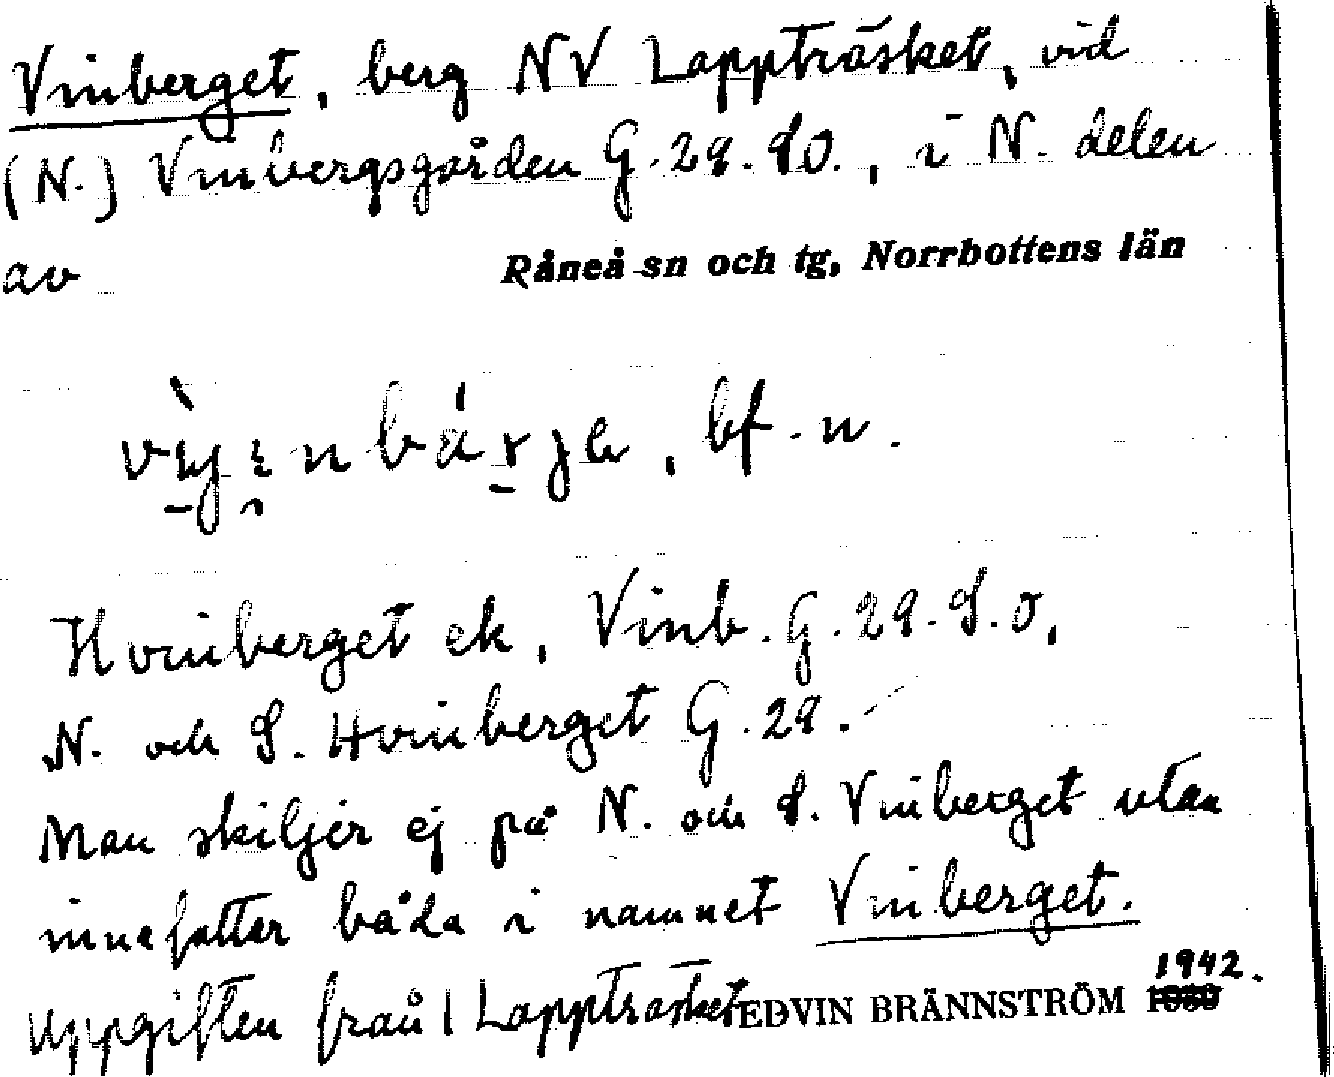 Vinberget, berg NV Lappträsket, vid
(N.) Vinbergsgården G.29.SO., i N. delen
av Råneå sn och tg, Norrbottens län
bf. n.
Hvinberget ek, Vinb. G.29.S.O,
N. och S. Hvinberget G.29.
Man skiljer ej på N. och S. Vinberget utan
innefattar båda i namnet Vinberget.
Uppgiften från Lappträsket EDVIN BRÄNNSTRÖM 1942.